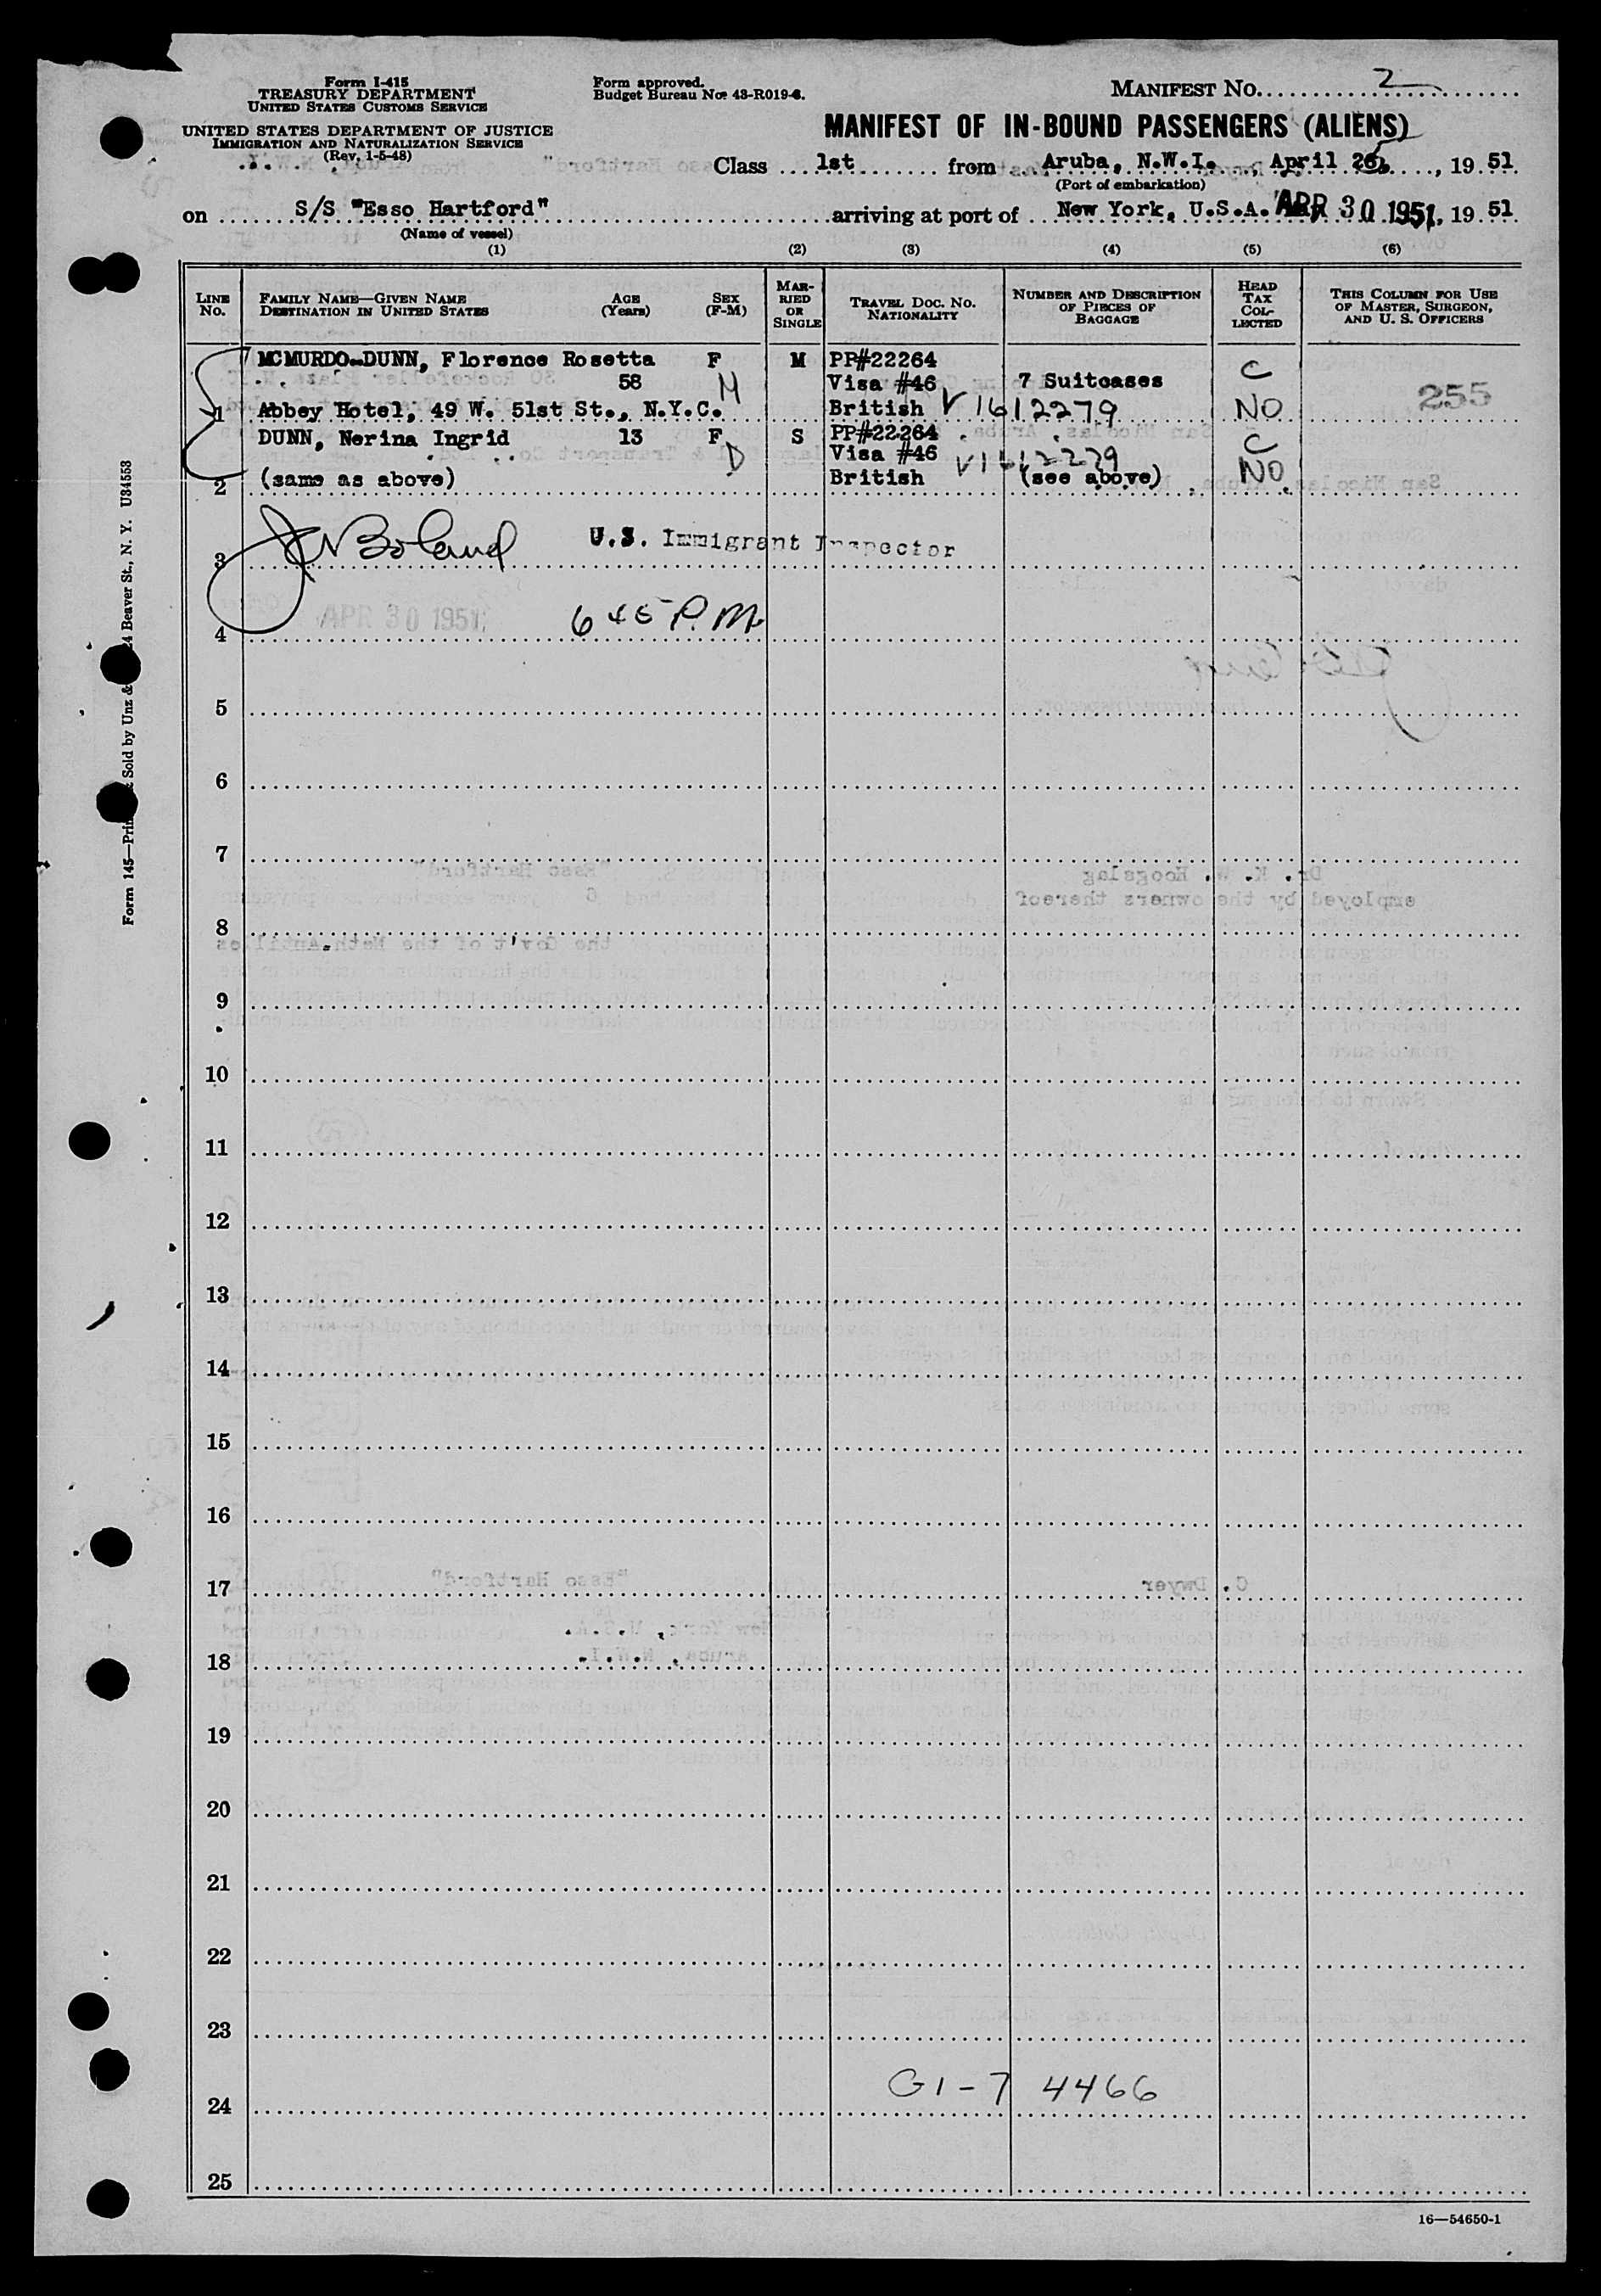 Form I-415
TREASURY DEPARTMENT
UNITED STATES CUSTOMS SERVICE
UNITED STATES DEPARTMENT OF JUSTICE
IMMIGRATION AND NATURALIZATION SERVICE
(Rev. 1-5-48)
Form approved.
Budget Bureau No. 43-R019-6.
MANIFEST NO. 2
MANIFEST OF IN-BOUND PASSENGERS (ALIENS)
Class 1st from Aruba, N.W.I., April 25, 19 51
(Port of embarkation)
on S/S "Esso Hartford" arriving at port of New York, U.S.A. APR 30 1951, 19 51
(Name of vessel)
(1) (2) (3) (4) (5) (6)
LINE NO.
FAMILY NAME—GIVEN NAME
DESTINATION IN UNITED STATES
AGE (Years)
SEX (F-M)
MARRIED OR SINGLE
TRAVEL DOC. NO.
NATIONALITY
NUMBER AND DESCRIPTION OF PIECES OF BAGGAGE
HEAD TAX COLLECTED
THIS COLUMN FOR USE OF MASTER, SURGEON, AND U. S. OFFICERS
MCMURDO-DUNN, Florence Rosetta F M PP#22264 C
58 M Visa #46 7 Suitcases 255
1 Abbey Hotel, 49 W. 51st St., N.Y.C. British V1612279 NO
DUNN, Nerina Ingrid 13 F S PP#22264 C
D Visa #46 V1612279
2 (same as above) British (see above) NO
3 J N Boland U.S. Immigrant Inspector
4 APR 30 1951 6 45 P.M.
5
6
7
8
9
10
11
12
13
14
15
16
17
18
19
20
21
22
23
G1-7 4466
24
25
16—54650-1
Form 145—Sold by Unz & 24 Beaver St., N. Y. U34553